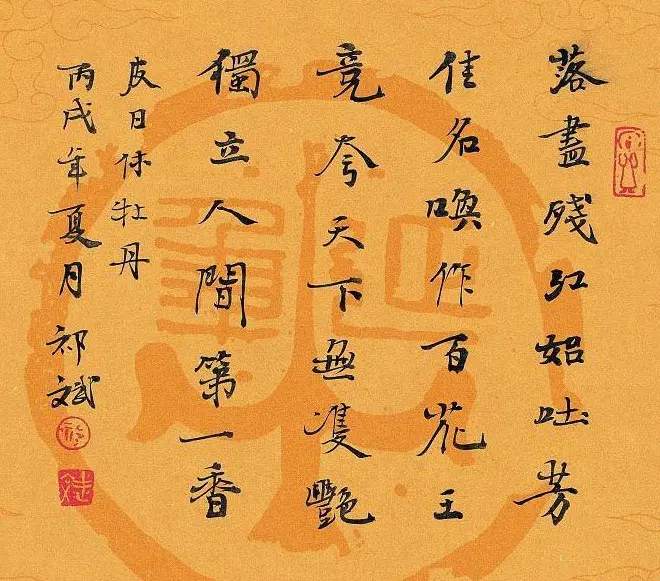 落盡殘紅始吐芳
佳名喚作百花王
竞夸天下無雙艷
獨立人間第一香
皮日休牡丹
丙戌年夏月祁斌